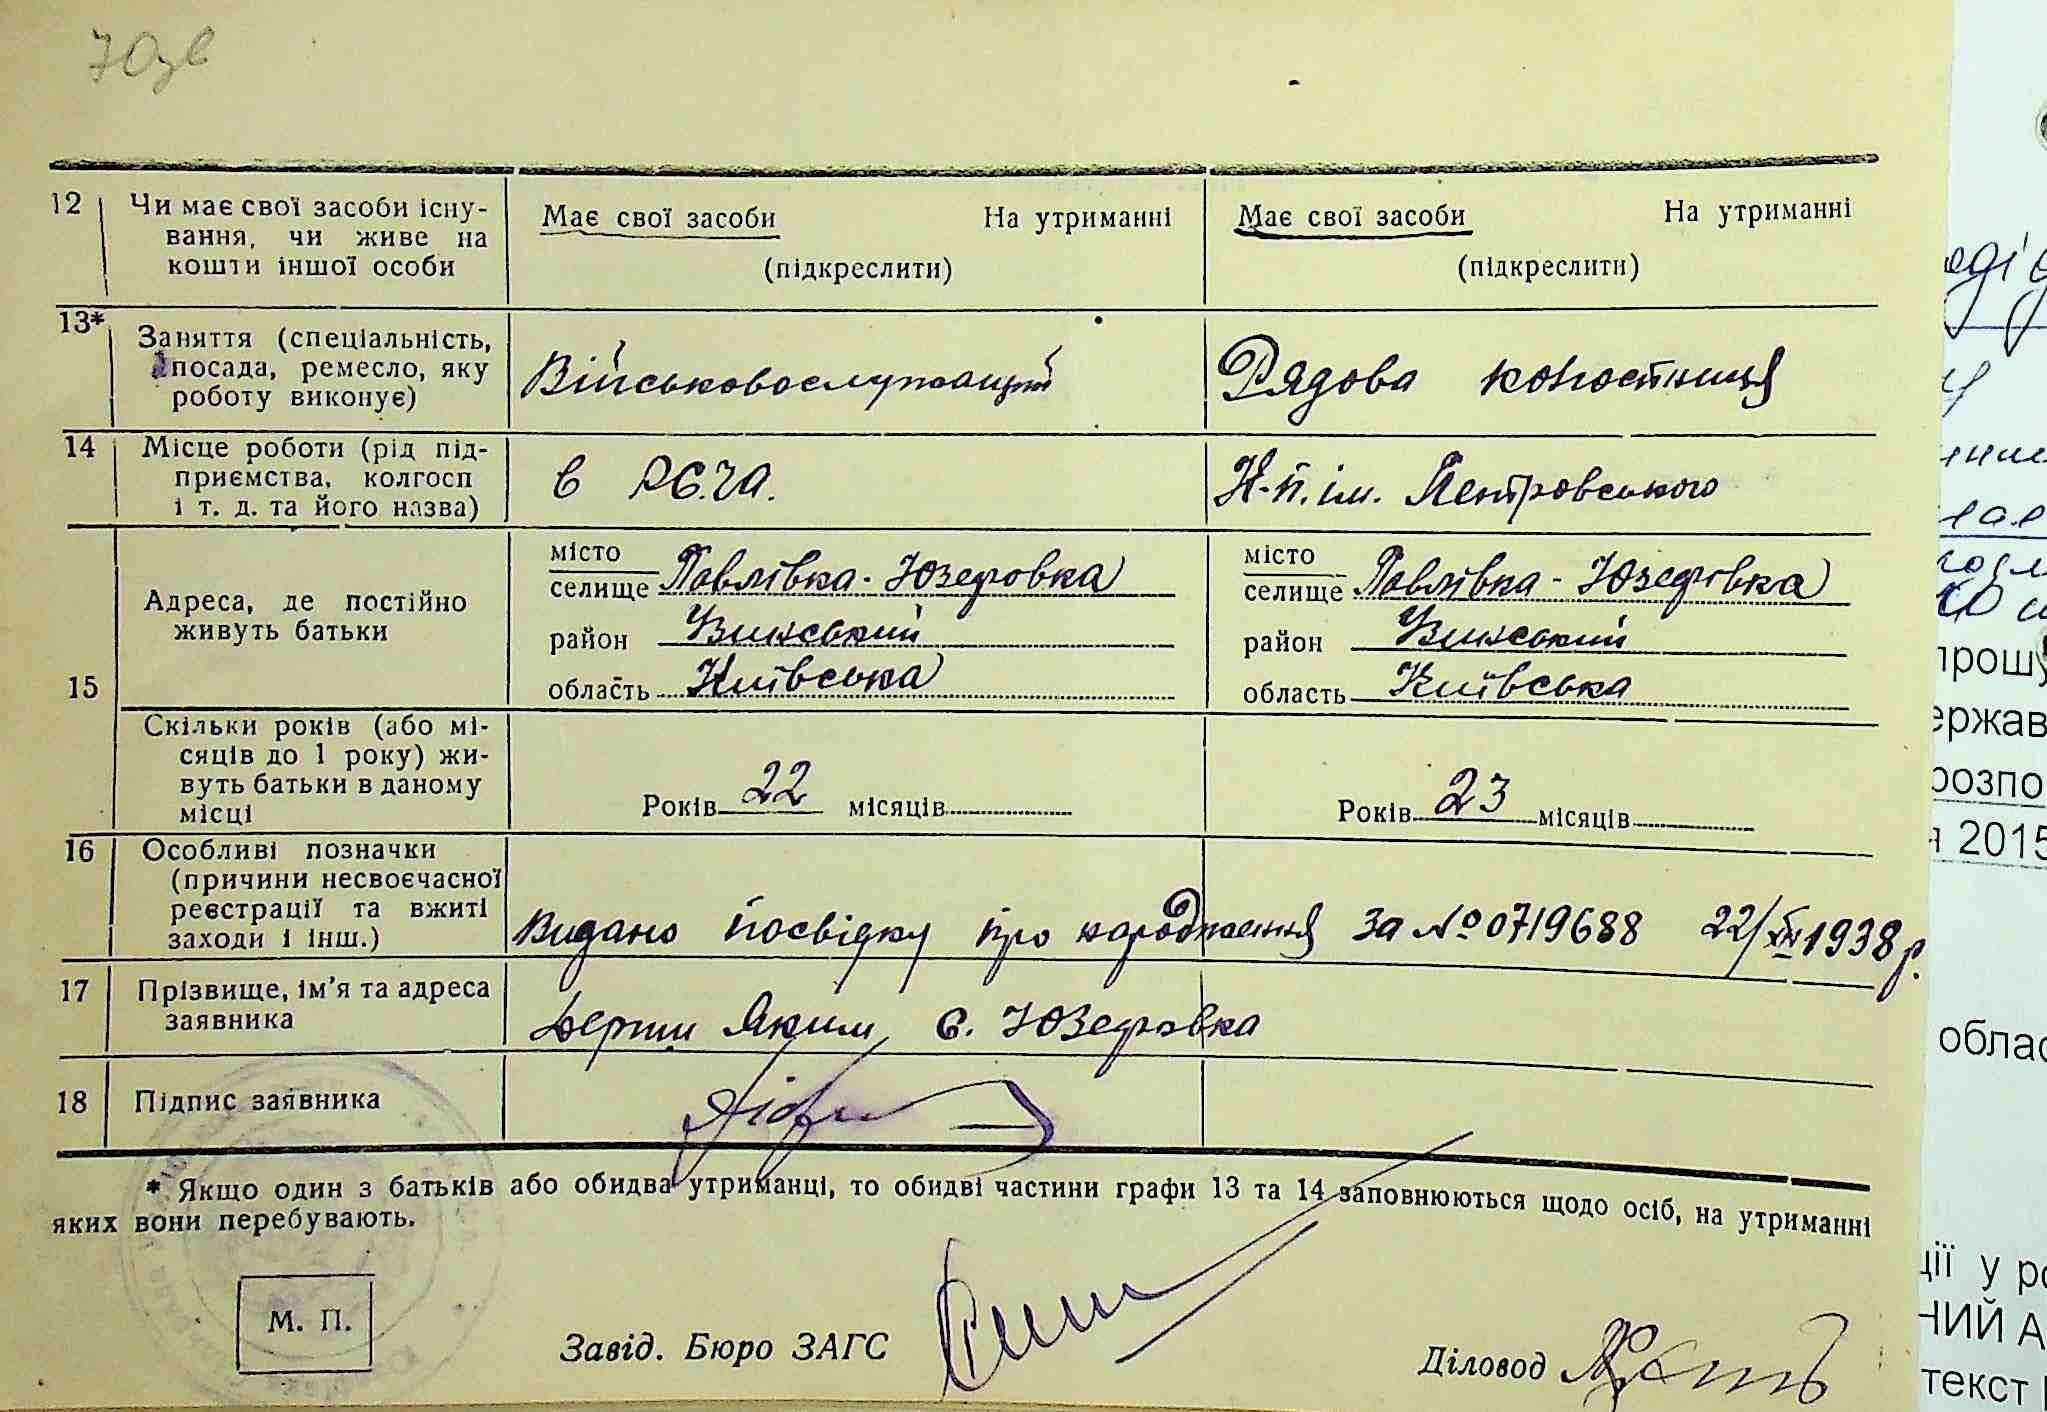 Юзе
12 Чи має свої засоби існу- Має свої засоби На утриманні Має свої засоби На утриманні
вання, чи живе на
кошти іншої особи (підкреслити) (підкреслити)
13* Заняття (спеціальність,
посада, ремесло, яку Військовослужащий Рядова
роботу виконує)
14 Місце роботи (рід під-
приємства, колгосп в ім. Петровського
і т. д. та його назва)
місто місто
селище Павлівка-Юзефовка селище Павлівка-Юзефівка
Адреса, де постійно
живуть батьки район район
15 область Київська область Київська
Скільки років (або мі-
сяців до 1 року) жи-
вуть батьки в даному Років 22 місяців Років 23 місяців
місці
16 Особливі позначки
(причини несвоєчасної
реєстрації та вжиті Видано посвідку про народження за № 0719688 22/XII 1938 р.
заходи і інш.)
17 Прізвище, ім'я та адреса
заявника Яким с. Юзефовка
18 Підпис заявника
* Якщо один з батьків або обидва утриманці, то обидві частини графи 13 та 14 заповнюються щодо осіб, на утриманні
яких вони перебувають.
М. П.
Завід. Бюро ЗАГС
Діловод
прошу
держав
розпо
я 2015
облас
ції у ро
НИЙ А
текст р